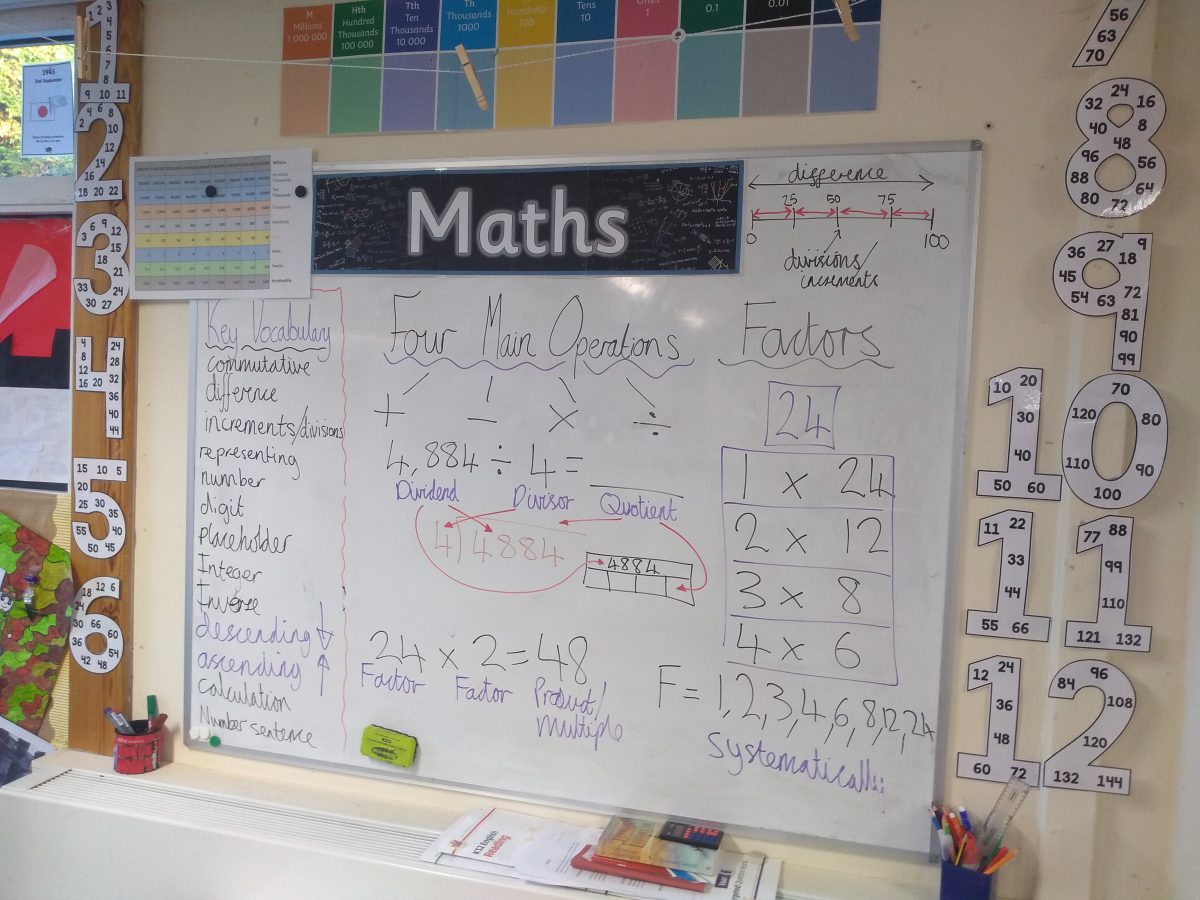 M
Millions
1 000 000
Hth
Hundred
Thousands
100 000
Tth
Ten
Thousands
10 000
Th
Thousands
1000
Hundreds
100
Tens
10
Ones
1
0.1
0.01
1945
2nd September
Maths
difference
25 50 75
0 100
divisions/
increments
Key Vocabulary
commutative
difference
increments/divisions
representing
number
digit
placeholder
Integer
Inverse
descending ↓
ascending ↑
calculation
Number sentence
Four Main Operations
+ − × ÷
4,884 ÷ 4 =
Dividend Divisor Quotient
4)4884
4884
24 × 2 = 48
Factor Factor Product/
Multiple
Factors
24
1 × 24
2 × 12
3 × 8
4 × 6
F = 1,2,3,4,6,8,12,24
Systematically
1 2 3
4
5
6
7
8
9 10 11
2 4 6
8
10
12
14
16
18 20 22
3 6 9
12
15
18
21
24
27
30
33
4
8
12
16 20
24
28
32
36
40
44
15 10 5
20
25 30
35
40
45
50
55
18 12 6
24
30
36
42 48
54
60
66
56
63
70
24
32 16
40 8
48
96 56
88 64
80 72
36 27 18 9
45
54 63
72
81
90
99
10 20
30
40
50 60
70
120 80
110 90
100
11 22
33
44
55 66
77 88
99
110
121 132
12 24
36
48
60 72
84 96
108
120
132 144
KS2 English
Reading